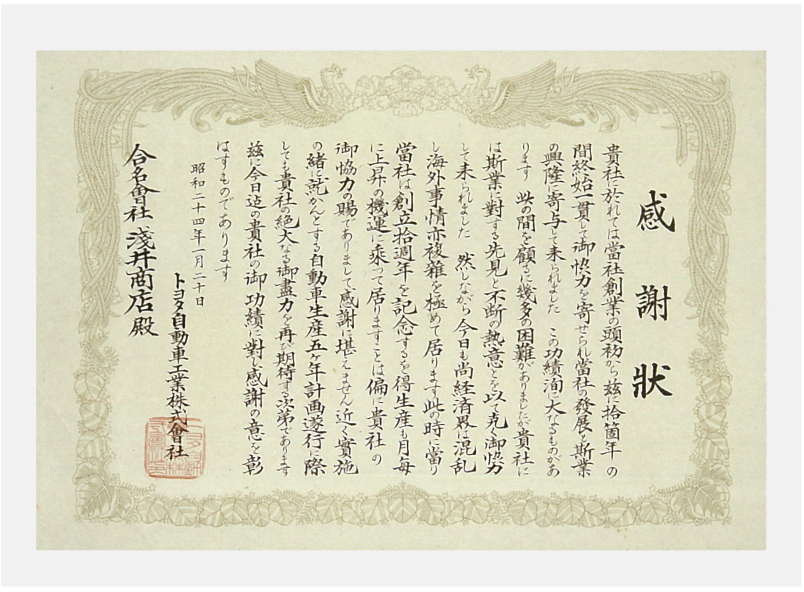 感謝狀
貴社に於れては當社創業の頭初から茲に拾箇年の
間終始一貫して御協力を寄せられ當社の發展と斯業
の興隆に寄与して来られました この功績洵に大なるものがあ
ります 此の間を顧るに幾多の困難がありましたが貴社に
は斯業に對する先見と不断の熱意とを以て克く御協力
して来られました 然しながら今日も尚経済界は混乱
し海外事情亦複雑を極めて居ります此の時に當り
當社は創立拾週年を記念するを得生産も月每
に上昇の機運に乘って居りますことは偏に貴社の
御協力の賜でありまして感謝に堪えません 近く實施
の緒に就かんとする自動車生産五ヶ年計画遂行に際
しても貴社の絶大なる御盡力を再び期待する次第であります
茲に今日迄の貴社の御功績に對し感謝の意を彰
はすものであります
昭和二十四年一月二十日
トヨタ自動車工業株式會社
合名會社 淺井商店殿